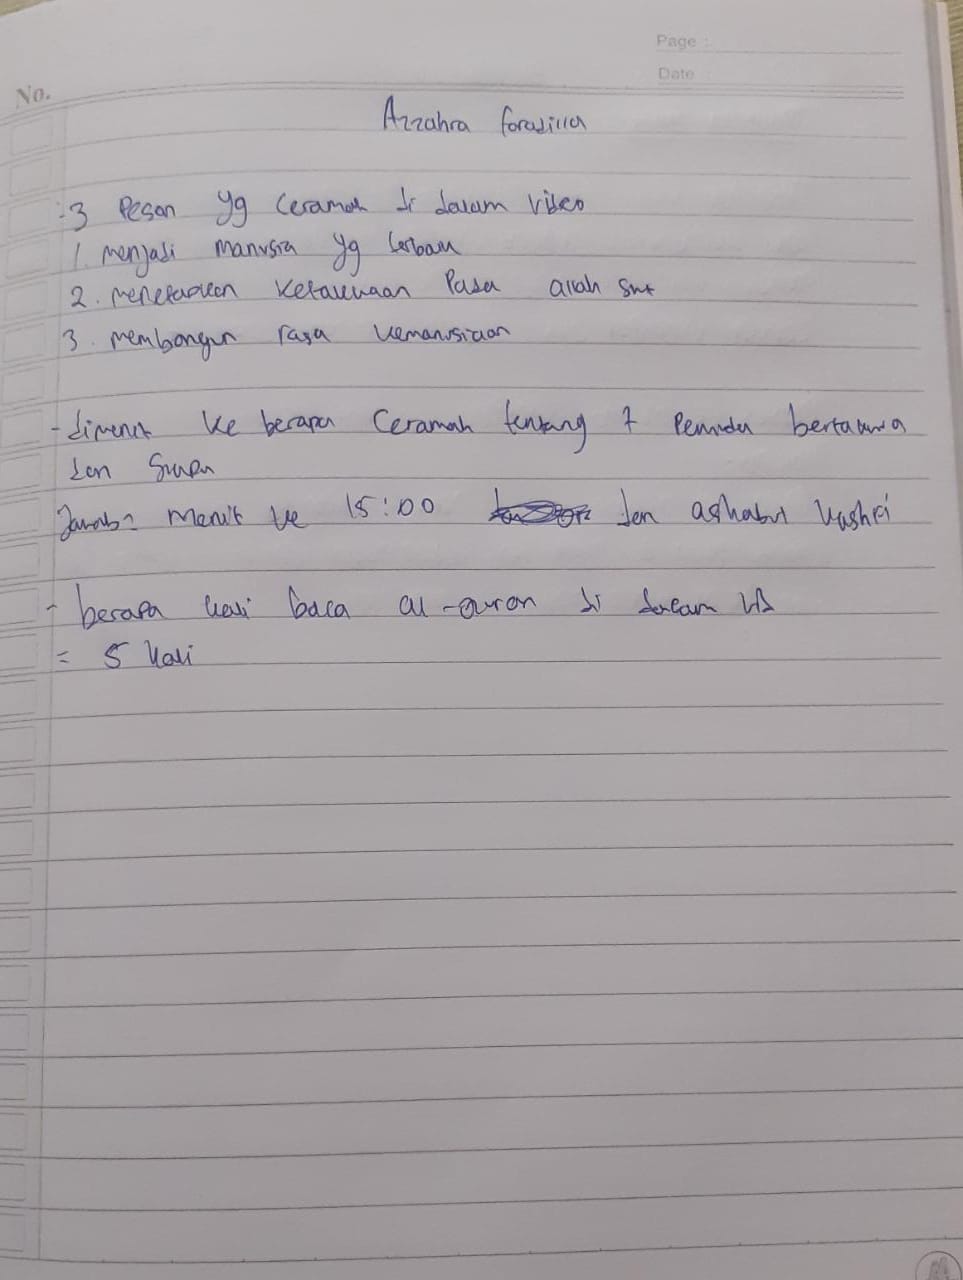 Page :
Date
No.
Azzahra foradilla
- 3 Pesan yg Ceramah di dalam video
1. menjadi manusia yg terbaik
2. menetapkan ketakwaan Pada allah swt
3. membangun rasa kemanusiaan
- dimenit ke berapa Ceramah tentang 7 Pemuda bertakwa
dan siapa
Jawab = Menit ke 15:00 dan ashabul kashfi
- berapa kali baca al-quran di dalam
= 5 kali